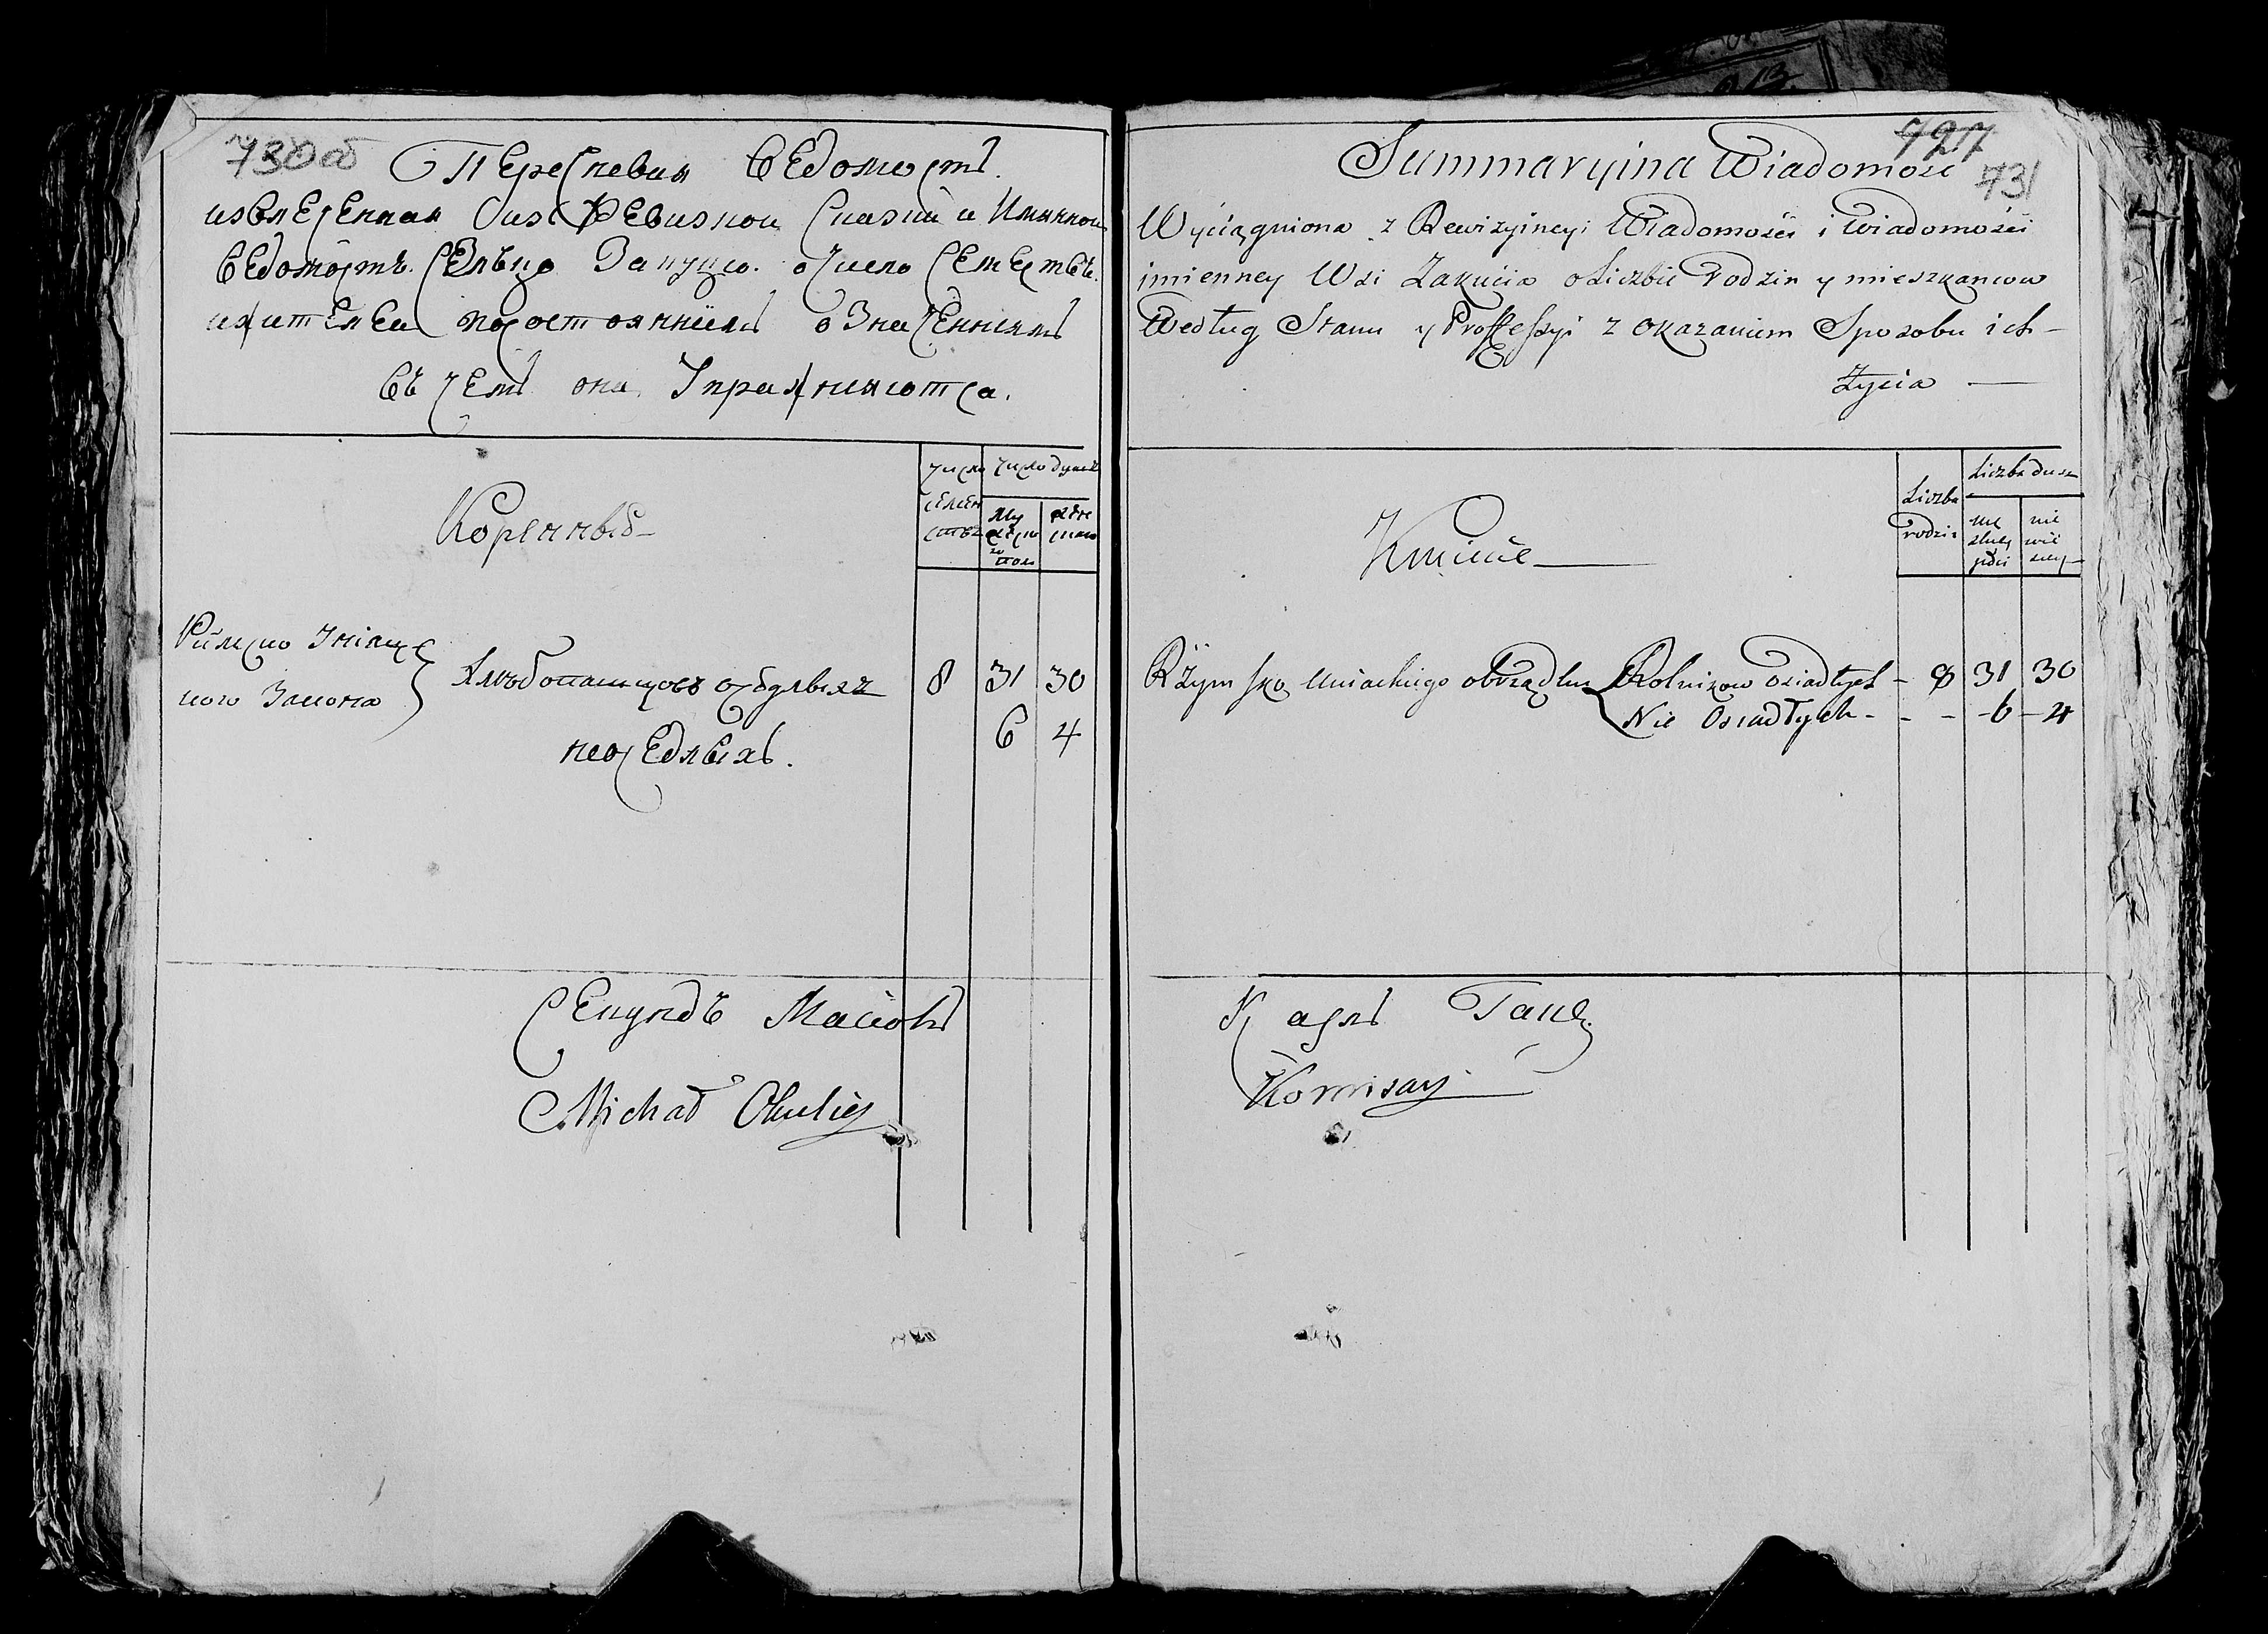 730 об
Перечневая Ведомость.
извлеченная изъ Ревизкои Сказки и Имянной
Ведомости Сельца о число семействъ
и жителей по состояниямъ означеннимъ
въ чемъ они Упражняютса.
Коренныя
число семействъ
число душъ
мужеска го пола
женска
Римско Унияцкого Закона } Хлебопашцовъ оседлыхъ 8 31 30
неоседлыхъ. 6 4
Секундъ
Michał
727
731
Summaryina Wiadomość
Wyciągniona z Rewizyiney Wiadomości i Wiadomości
imienney Wsi Zakucia o Liczbie rodzin y mieszkancow
Według Stanu y Proffessyi z okazaniem Sposobu ich
Życia
Kmiecie
Liczba rodzin
Liczba dusz
męzkiey płci
niewiesciey
Rżymsko Uniackiego obrządku Rolnikow osiadłych - 8 31 30
Nie Osiadłych - - - 6 - 4
Komisarz